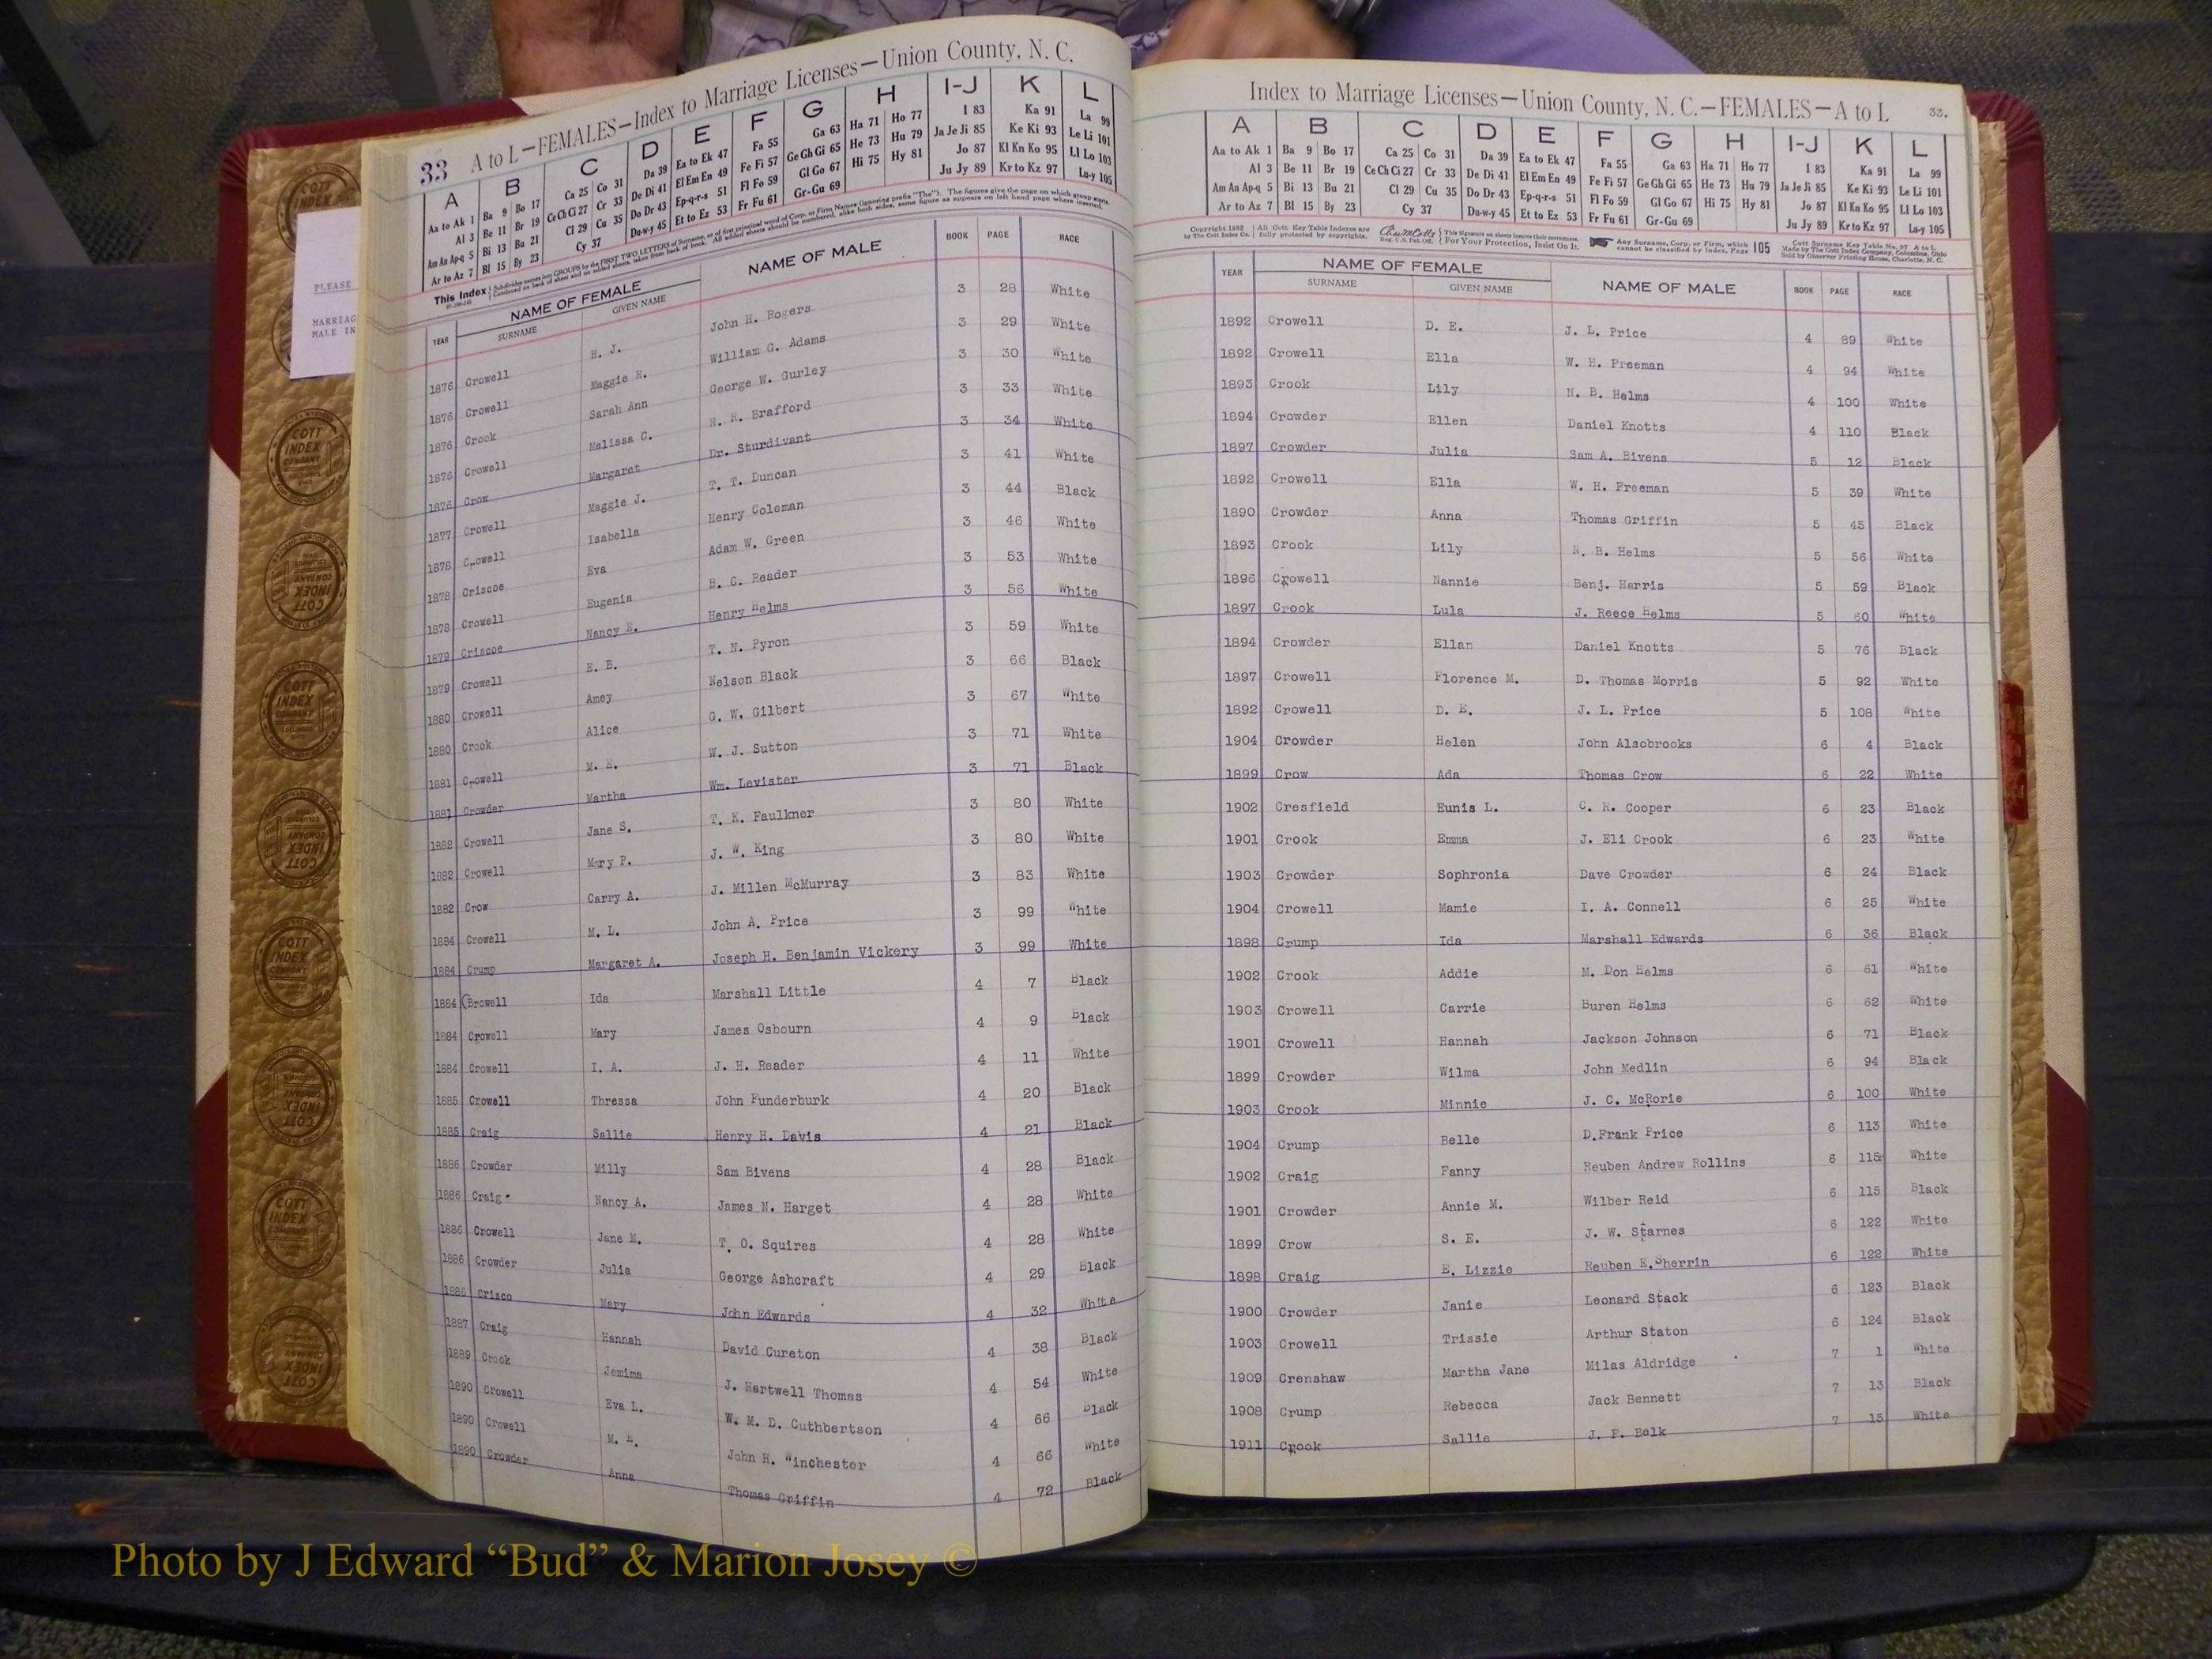 33 A to L—FEMALES—Index to Marriage Licenses—Union County, N. C.
A B C D E F G H I-J K L
Aa to Ak 1 Ba 9 Bo 17 Ca 25 Co 31 Da 39 Ea to Ek 47 Fa 55 Ga 63 Ha 71 Ho 77 I 83 Ka 91 La 99
Al 3 Be 11 Br 19 Ce Ch Ci 27 Cr 33 De Di 41 El Em En 49 Fe Fi 57 Ge Gh Gi 65 He 73 Hu 79 Ja Je Ji 85 Ke Ki 93 Le Li 101
Am An Ap-q 5 Bi 13 Bu 21 Cl 29 Cu 35 Do Dr 43 Ep-q-r-s 51 Fl Fo 59 Gl Go 67 Hi 75 Hy 81 Jo 87 Kl Kn Ko 95 Ll Lo 103
Ar to Az 7 Bl 15 By 23 Cy 37 Du-w-y 45 Et to Ez 53 Fr Fu 61 Gr-Gu 69 Ju Jy 89 Kr to Kz 97 Lu-y 105
This Index
YEAR NAME OF FEMALE SURNAME GIVEN NAME NAME OF MALE BOOK PAGE RACE
1876 Crowell H. J. John H. Rogers 3 28 White
1876 Crowell Maggie R. William G. Adams 3 29 White
1876 Crook Sarah Ann George W. Gurley 3 30 White
1876 Crowell Malissa C. R. R. Brafford 3 33 White
1876 Crow Margaret Dr. Sturdivant 3 34 White
1877 Crowell Maggie J. T. T. Duncan 3 41 White
1878 Crowell Isabella Henry Coleman 3 44 Black
1878 Criscoe Eva Adam W. Green 3 46 White
1878 Crowell Eugenia B. C. Reader 3 53 White
1879 Criscoe Nancy E. Henry Helms 3 56 White
1879 Crowell E. B. T. N. Pyron 3 59 White
1880 Crowell Amey Nelson Black 3 66 Black
1880 Crook Alice G. W. Gilbert 3 67 White
1881 Crowell M. E. W. J. Sutton 3 71 White
1881 Crowder Martha Wm. Levister 3 71 Black
1882 Crowell Jane S. T. K. Faulkner 3 80 White
1882 Crowell Mary P. J. W. King 3 80 White
1882 Crow Carry A. J. Millen McMurray 3 83 White
1884 Crowell M. L. John A. Price 3 99 White
1884 Crump Margaret A. Joseph H. Benjamin Vickery 3 99 White
1884 Crowell Ida Marshall Little 4 7 Black
1884 Crowell Mary James Osbourn 4 9 Black
1884 Crowell I. A. J. H. Reader 4 11 White
1885 Crowell Thressa John Funderburk 4 20 Black
1885 Craig Sallie Henry H. Davis 4 21 Black
1886 Crowder Milly Sam Bivens 4 28 Black
1886 Craig Nancy A. James N. Harget 4 28 White
1886 Crowell Jane M. T. O. Squires 4 28 White
1886 Crowder Julia George Ashcraft 4 29 Black
1886 Crisco Mary John Edwards 4 32 White
1887 Craig Hannah David Cureton 4 38 Black
1889 Crook Jemima J. Hartwell Thomas 4 54 White
1890 Crowell Eva L. W. M. D. Cuthbertson 4 66 Black
1890 Crowell M. E. John H. Winchester 4 66 White
1890 Crowder Anna Thomas Griffin 4 72 Black
PLEASE
MARRIAG
MALE IN
Index to Marriage Licenses—Union County, N. C.—FEMALES—A to L 33.
A B C D E F G H I-J K L
Aa to Ak 1 Ba 9 Bo 17 Ca 25 Co 31 Da 39 Ea to Ek 47 Fa 55 Ga 63 Ha 71 Ho 77 I 83 Ka 91 La 99
Al 3 Be 11 Br 19 Ce Ch Ci 27 Cr 33 De Di 41 El Em En 49 Fe Fi 57 Ge Gh Gi 65 He 73 Hu 79 Ja Je Ji 85 Ke Ki 93 Le Li 101
Am An Ap-q 5 Bi 13 Bu 21 Cl 29 Cu 35 Do Dr 43 Ep-q-r-s 51 Fl Fo 59 Gl Go 67 Hi 75 Hy 81 Jo 87 Kl Kn Ko 95 Ll Lo 103
Ar to Az 7 Bl 15 By 23 Cy 37 Du-w-y 45 Et to Ez 53 Fr Fu 61 Gr-Gu 69 Ju Jy 89 Kr to Kz 97 Lu-y 105
YEAR NAME OF FEMALE SURNAME GIVEN NAME NAME OF MALE BOOK PAGE RACE
1892 Crowell D. E. J. L. Price 4 89 White
1892 Crowell Ella W. H. Freeman 4 94 White
1893 Crook Lily N. B. Helms 4 100 White
1894 Crowder Ellen Daniel Knotts 4 110 Black
1897 Crowder Julia Sam A. Bivens 5 12 Black
1892 Crowell Ella W. H. Freeman 5 39 White
1890 Crowder Anna Thomas Griffin 5 45 Black
1893 Crook Lily N. B. Helms 5 56 White
1896 Crowell Nannie Benj. Harris 5 59 Black
1897 Crook Lula J. Reece Helms 5 60 White
1894 Crowder Ellan Daniel Knotts 5 76 Black
1897 Crowell Florence M. D. Thomas Morris 5 92 White
1892 Crowell D. E. J. L. Price 5 108 White
1904 Crowder Helen John Alsobrooks 6 4 Black
1899 Crow Ada Thomas Crow 6 22 White
1902 Cresfield Eunis L. C. R. Cooper 6 23 Black
1901 Crook Emma J. Eli Crook 6 23 White
1903 Crowder Sophronia Dave Crowder 6 24 Black
1904 Crowell Mamie I. A. Connell 6 25 White
1898 Crump Ida Marshall Edwards 6 36 Black
1902 Crook Addie M. Don Helms 6 61 White
1903 Crowell Carrie Buren Helms 6 62 White
1901 Crowell Hannah Jackson Johnson 6 71 Black
1899 Crowder Wilma John Medlin 6 94 Black
1903 Crook Minnie J. C. McRorie 6 100 White
1904 Crump Belle D.Frank Price 6 113 White
1902 Craig Fanny Reuben Andrew Rollins 6 115 White
1901 Crowder Annie M. Wilber Reid 6 115 Black
1899 Crow S. E. J. W. Starnes 6 122 White
1898 Craig E. Lizzie Reuben E.Sherrin 6 122 White
1900 Crowder Janie Leonard Stack 6 123 Black
1903 Crowell Trissie Arthur Staton 6 124 Black
1909 Crenshaw Martha Jane Milas Aldridge 7 1 White
1908 Crump Rebecca Jack Bennett 7 13 Black
1911 Crook Sallie J. F. Belk 7 15 White
Photo by J Edward “Bud” & Marion Josey ©